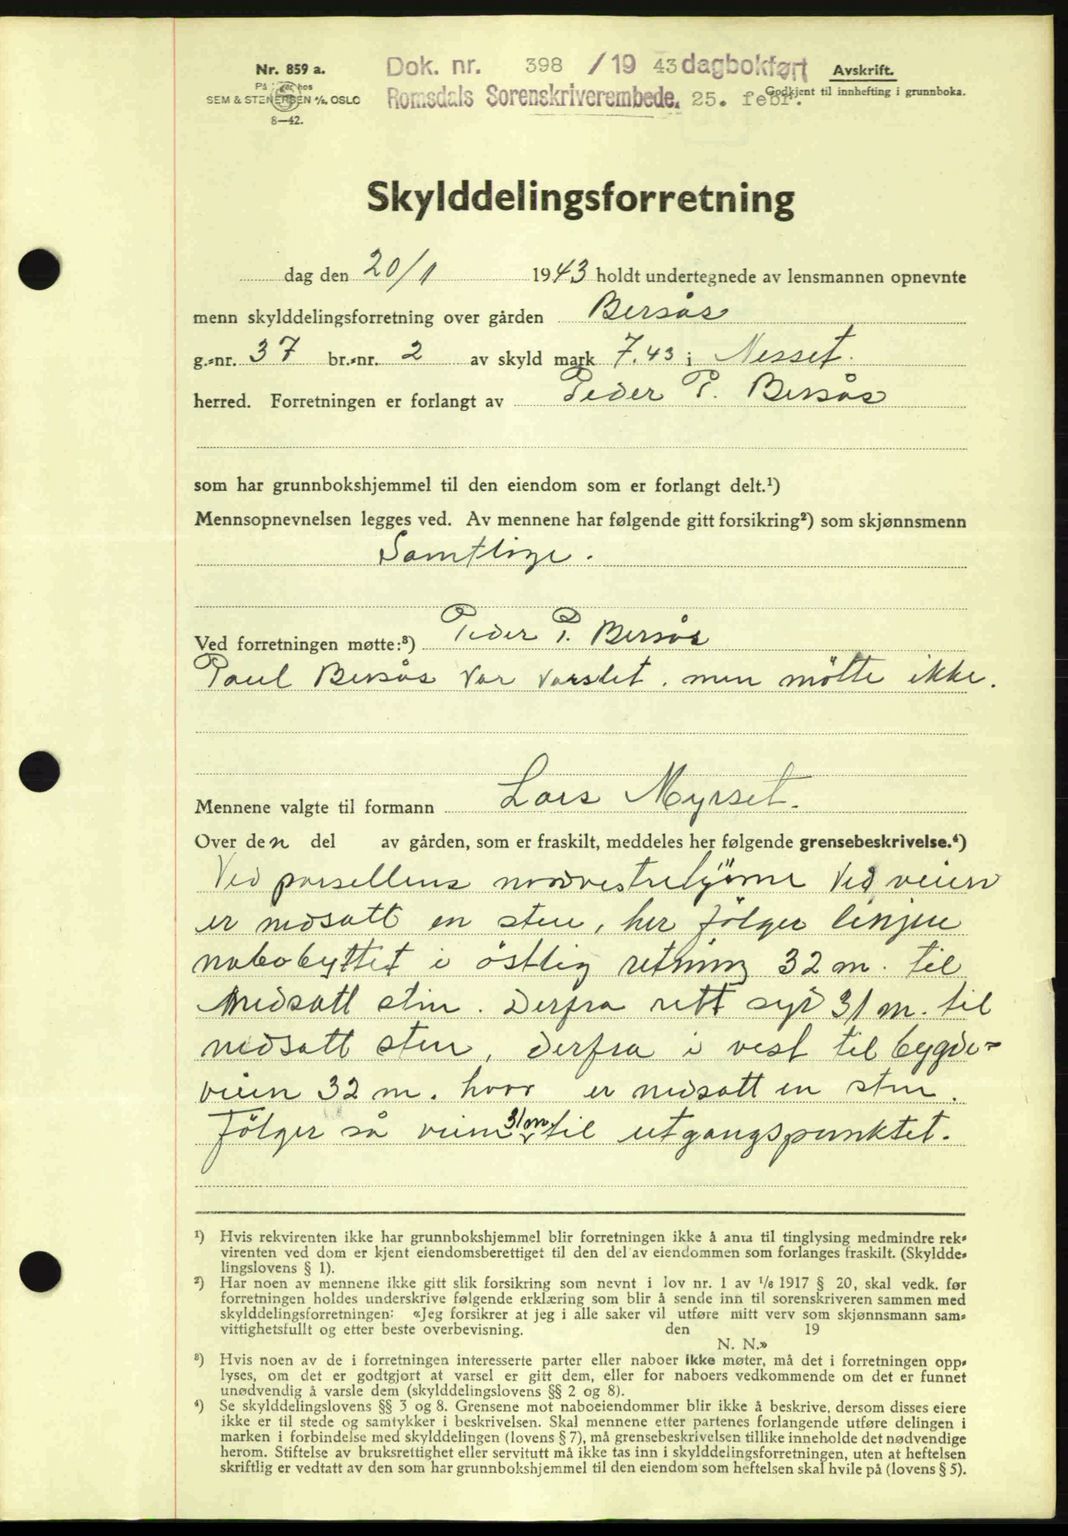 Nr. 859 a.
På lager hos
SEM & STENERSEN A/S, OSLO
8—42.
Dok. nr. 398 /19 43 dagbokført
Romsdals Sorenskriverembede. 25. febr.
Avskrift.
Godkjent til innhefting i grunnboka.
Skylddelingsforretning
dag den 20/1 1943 holdt undertegnede av lensmannen opnevnte
menn skylddelingsforretning over gården Bersås
g.-nr. 37 br.-nr. 2 av skyld mark 7.43 i Nesset.
herred. Forretningen er forlangt av Peder P. Bersås
som har grunnbokshjemmel til den eiendom som er forlangt delt.¹)
Mennsopnevnelsen legges ved. Av mennene har følgende gitt forsikring²) som skjønnsmenn
Samtlige.
Ved forretningen møtte:³) Peder P. Bersås
Paul Bersås var varslet. men mötte ikke.
Mennene valgte til formann Lars Myrset.
Over den del av gården, som er fraskilt, meddeles her følgende grensebeskrivelse.⁴)
Ved parsellens nordvestrehjörne ved veien
er nedsatt en sten, her fölger linjen
nabobyttet i östlig retning 32 m. til
nedsatt sten. Derfra rett syd 31 m. til
nedsatt sten, derfra i vest til bygde-
veien 32 m. hvor er nedsatt en sten.
Fölger så veien 31 m til utgangspunktet.
¹) Hvis rekvirenten ikke har grunnbokshjemmel blir forretningen ikke å anta til tinglysing medmindre rek-
virenten ved dom er kjent eiendomsberettiget til den del av eiendommen som forlanges fraskilt. (Skyldde-
lingslovens § 1).
²) Har noen av mennene ikke gitt slik forsikring som nevnt i lov nr. 1 av 1/6 1917 § 20, skal vedk. før
forretningen holdes underskrive følgende erklæring som blir å sende inn til sorenskriveren sammen med
skylddelingsforretningen: «Jeg forsikrer at jeg i alle saker vil utføre mitt verv som skjønnsmann sam-
vittighetsfullt og etter beste overbevisning. den 19
N. N.»
³) Hvis noen av de i forretningen interesserte parter eller naboer ikke møter, må det i forretningen opp-
lyses, om det er godtgjort at varsel er gitt dem, eller for naboers vedkommende om det er funnet
unødvendig å varsle dem (skylddelingslovens §§ 2 og 8).
⁴) Se skylddelingslovens §§ 3 og 8. Grensene mot naboeiendommer blir ikke å beskrive, dersom disses eiere
ikke er til stede og samtykker i beskrivelsen. Skal mennene etter partenes forlangende utføre delingen i
marken i forbindelse med skylddelingen (lovens § 7), må grensebeskrivelsen tillike inneholde det nødvendige
herom. Stiftelse av bruksrettighet eller servitutt må ikke tas inn i skylddelingsforretningen, uten at heftelsen
skriftlig er vedtatt av den som har grunnbokshjemmel til den eiendom som heftelsen skal hvile på (lovens § 5).